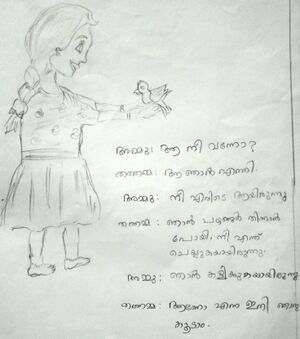 അമ്മു: ആ നീ വന്നോ?
തത്തമ്മ: ആ ഞാൻ എത്തി.
അമ്മു: നീ എവിടെ ആയിരുന്നു
തത്തമ്മ: ഞാൻ പഴങ്ങൾ തിന്നാൻ
പോയി. നീ എന്ത്
ചെയ്യുകയായിരുന്നു.
അമ്മു: ഞാൻ കളിക്കുകയായിരുന്നു
തത്തമ്മ: ആണോ എന്നാ ഇനി ഞാനു
കൂടാം.